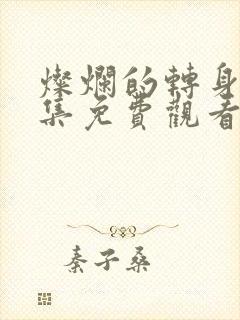 燦爛的轉身
集免費觀看
秦子桑